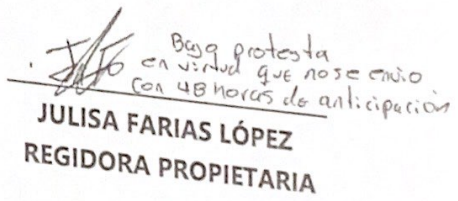 Bajo protesta
en virtud que no se envio
con 48 horas de anticipación
JULISA FARIAS LÓPEZ
REGIDORA PROPIETARIA